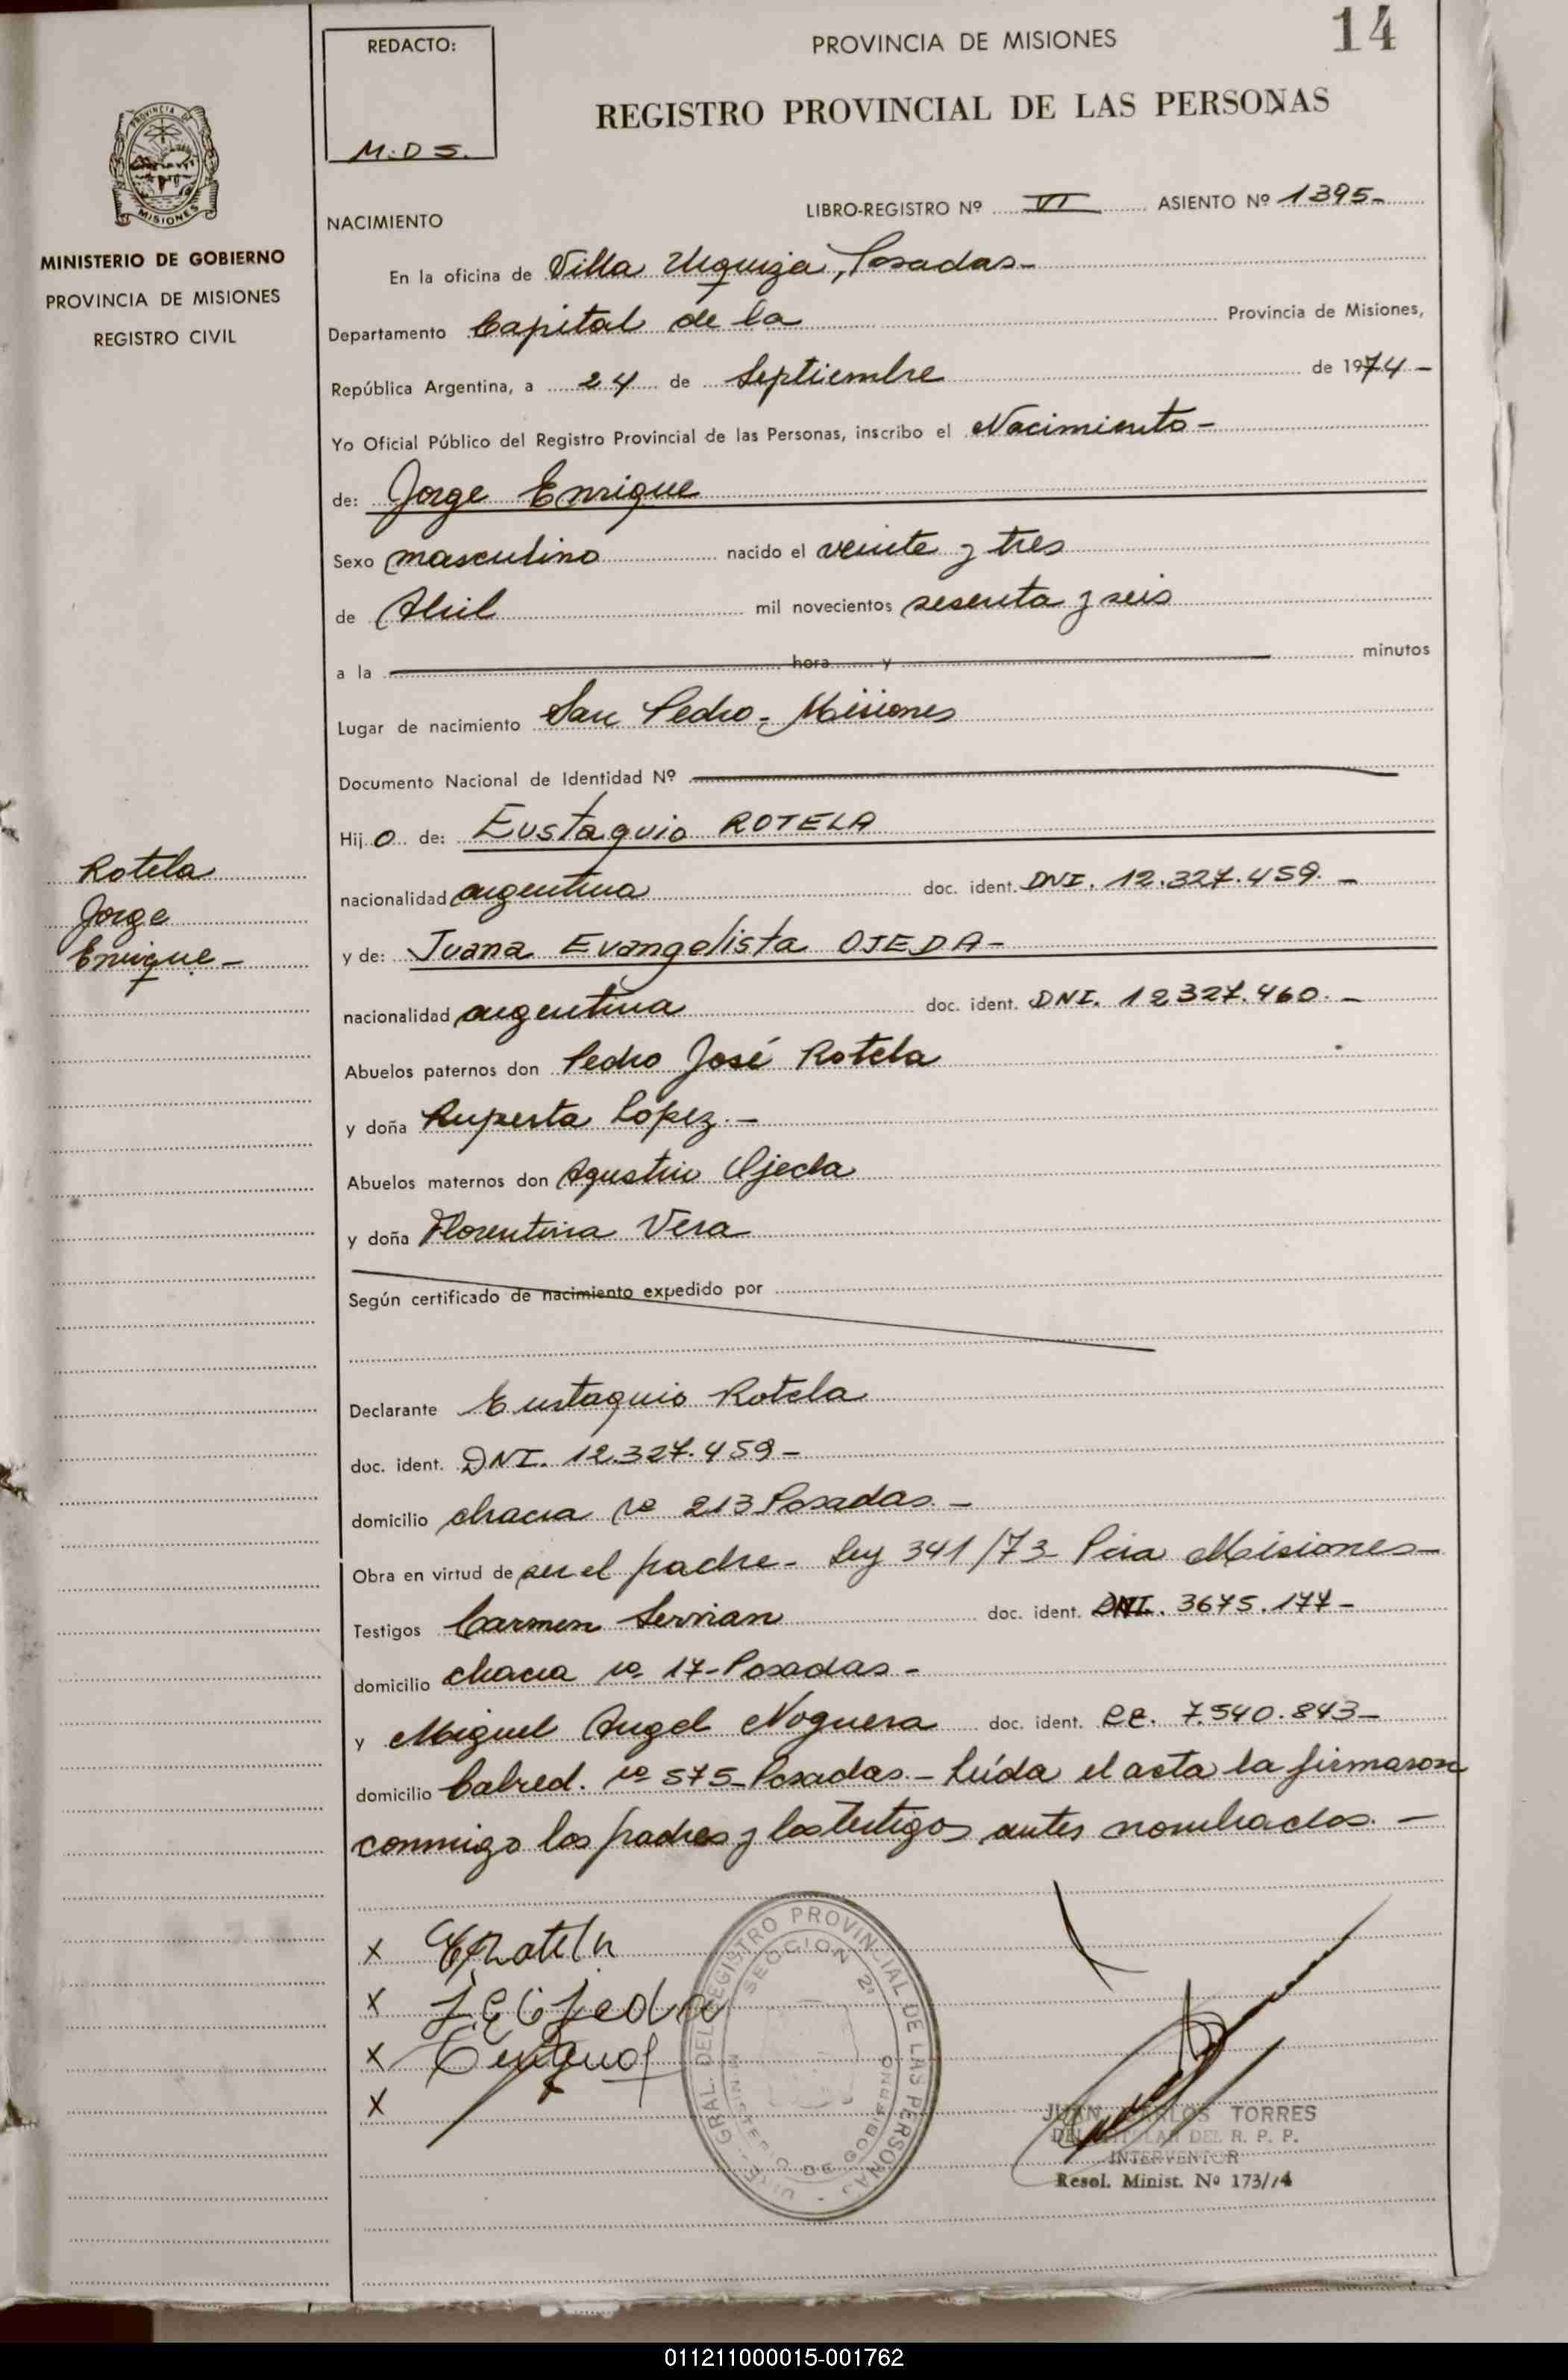 14
REDACTO:
M.D S.
PROVINCIA DE MISIONES
REGISTRO PROVINCIAL DE LAS PERSONAS
PROVINCIA DE
MISIONES
MINISTERIO DE GOBIERNO
PROVINCIA DE MISIONES
REGISTRO CIVIL
NACIMIENTO
LIBRO-REGISTRO Nº VI ASIENTO Nº 1395-
En la oficina de Villa Urquiza, Posadas-
Departamento Capital de la Provincia de Misiones,
República Argentina, a 24 de Septiembre de 1974-
Yo Oficial Público del Registro Provincial de las Personas, inscribo el Nacimiento-
de: Jorge Enrique
Sexo masculino nacido el veinte y tres
de Abril mil novecientos sesenta y seis
a la hora y minutos
Lugar de nacimiento San Pedro - Misiones
Documento Nacional de Identidad Nº
Hijo de: Eustaquio ROTELA
nacionalidad argentina doc. ident. DNI. 12.327.459. -
y de: Juana Evangelista OJEDA-
nacionalidad argentina doc. ident. DNI. 12327.460. -
Abuelos paternos don Pedro José Rotela
y doña Ruperta López. -
Abuelos maternos don Agustin Ojeda
y doña Florentina Vera
Según certificado de nacimiento expedido por
Declarante Eustaquio Rotela
doc. ident. DNI. 12.327.459-
domicilio chacra nº 213 Posadas. -
Obra en virtud de ser el padre - Ley 341/73 Pcia Misiones-
Testigos Carmen Servian doc. ident. DNI. 3675.177-
domicilio chacra nº 17-Posadas -
y Miguel Angel Noguera doc. ident. 7.540.843-
domicilio Cabred. nº 575-Posadas. - Leída el acta la firmaron
conmigo los padres y los testigos antes nombrados. -
Rotela
Jorge
Enrique-
x ERotela
x J E Ojeda
x
x
GRAL. DEL REGISTRO PROVINCIAL DE LAS PERSONAS
SECCION 2ª
MINISTERIO DE GOBIERNO
JUAN CARLOS TORRES
DEL R. P. P.
INTERVENTOR
Resol. Minist. Nº 173/74
011211000015-001762